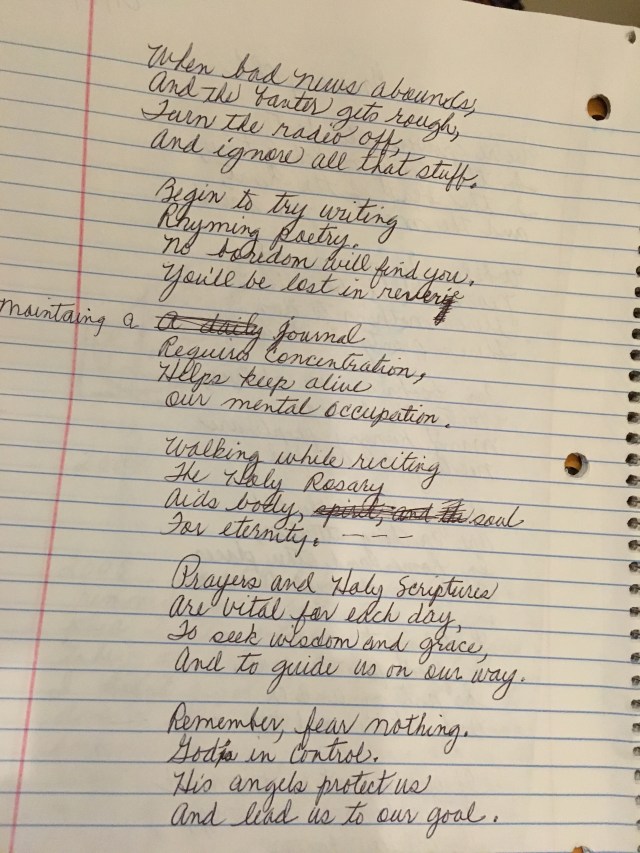 When bad news abounds,
And the banter gets rough,
Turn the radio off,
And ignore all that stuff.
Begin to try writing
Rhyming poetry.
No boredom will find you.
You'll be lost in reverie
Maintaing a a daily journal
Requires concentration,
Helps keep alive
our mental occupation.
Walking while reciting
The Holy Rosary
Aids body, spirit, and the soul
For eternity. - - -
Prayers and Holy Scriptures
are vital for each day,
To seek wisdom and grace,
And to guide us on our way.
Remember, fear nothing.
God's in control.
His angels protect us
And lead us to our goal.